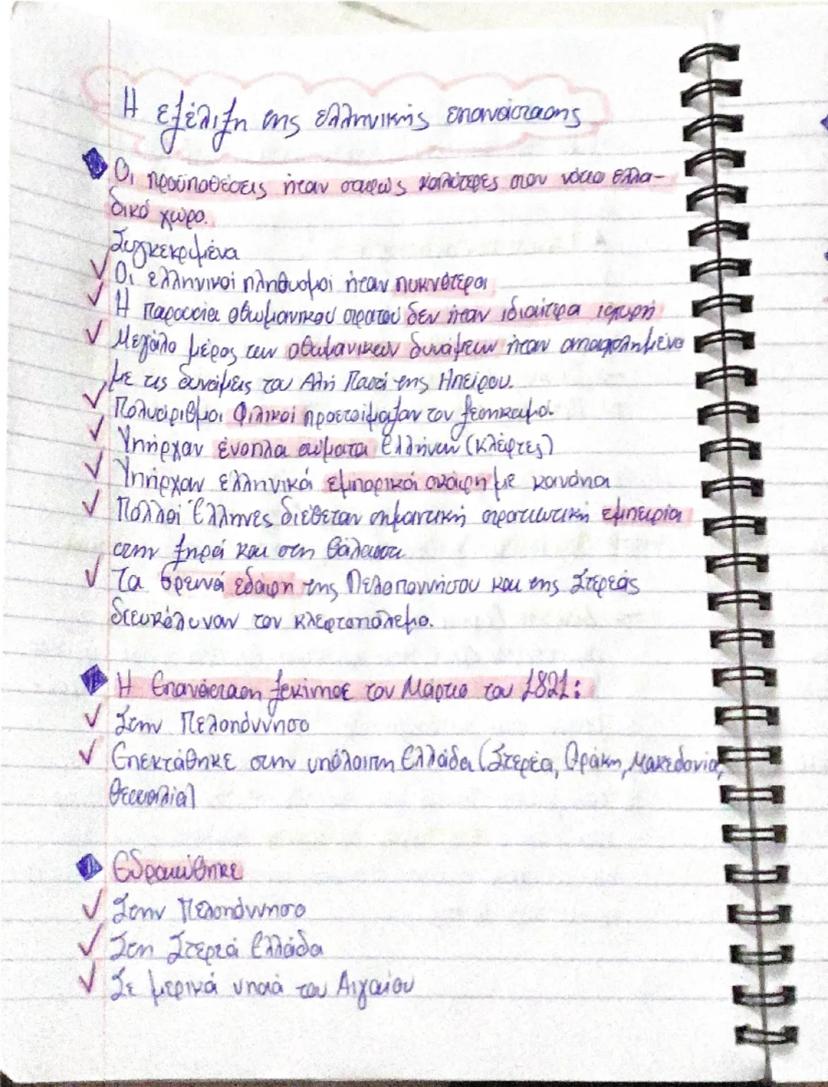 Η εξέλιξη της ελληνικής επανάστασης
Οι προϋποθέσεις ήταν σαφώς καλύτερες στον νότιο ελλα-
δικό χώρο.
Συγκεκριμένα
Οι ελληνικοί πληθυσμοί ήταν πυκνότεροι
Η παρουσία οθωμανικού στρατού δεν ήταν ιδιαίτερα ισχυρή
Μεγάλο μέρος των οθωμανικών δυνάμεων ήταν απασχολημένο
με τις δυνάμεις του Αλή Πασά της Ηπείρου.
Πολυάριθμοι Φιλικοί προετοίμαζαν τον ξεσηκωμό.
Υπήρχαν ένοπλα σώματα Ελλήνων (κλέφτες)
Υπήρχαν ελληνικά εμπορικά σκάφη με κανόνια
Πολλοί Έλληνες διέθεταν σημαντική στρατιωτική εμπειρία
στην ξηρά και στη θάλασσα
Τα ορεινά εδάφη της Πελοποννήσου και της Στερεάς
διευκόλυναν τον κλεφτοπόλεμο.
Η Επανάσταση ξεκίνησε τον Μάρτιο του 1821:
Στην Πελοπόννησο
Επεκτάθηκε στην υπόλοιπη Ελλάδα (Στερεά, Θράκη, Μακεδονία,
Θεσσαλία)
Εδραιώθηκε
Στην Πελοπόννησο
Στη Στερεά Ελλάδα
Σε μερικά νησιά του Αιγαίου